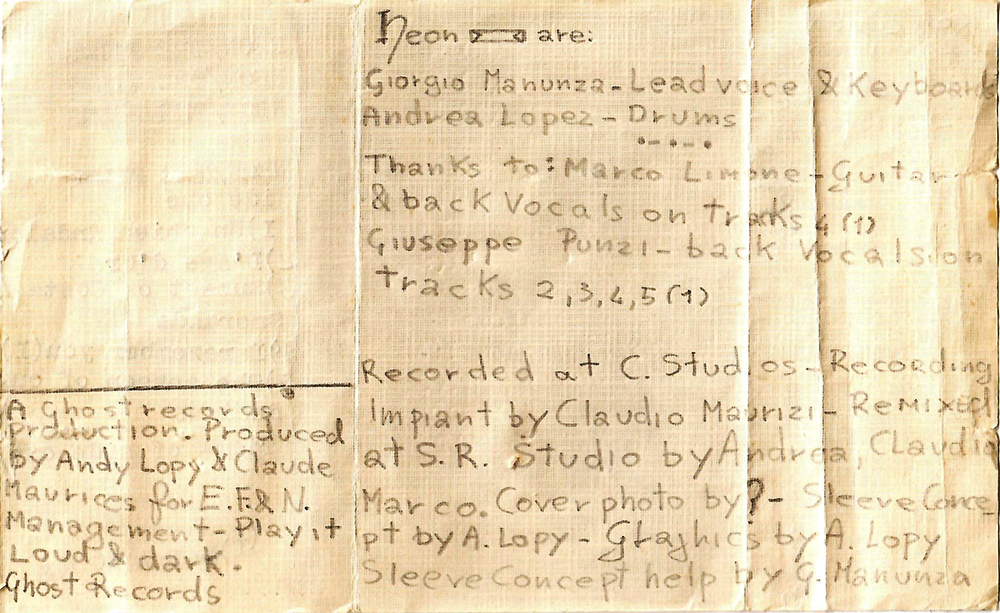 Neon are:
Giorgio Manunza-Lead voice & Keyboards
Andrea Lopez-Drums
Thanks to: Marco Limone-Guitar
& back Vocals on traks 4 (1)
Giuseppe Punzi-back Vocals on
tracks 2,3,4,5 (1)
Recorded at C. Studios-Recording
Impiant by Claudio Maurizi-Remixed
at S.R. Studio by Andrea, Claudio
Marco. Cover photo by ?- Sleeve Conce
pt by A. Lopy-Graphics by A. Lopy
Sleeve Concept help by G. Manunza
A Ghost records
production. Produced
by Andy Lopy & Claude
Maurices for E.F.& N.
Management-Play it
Loud & dark.
Ghost Records